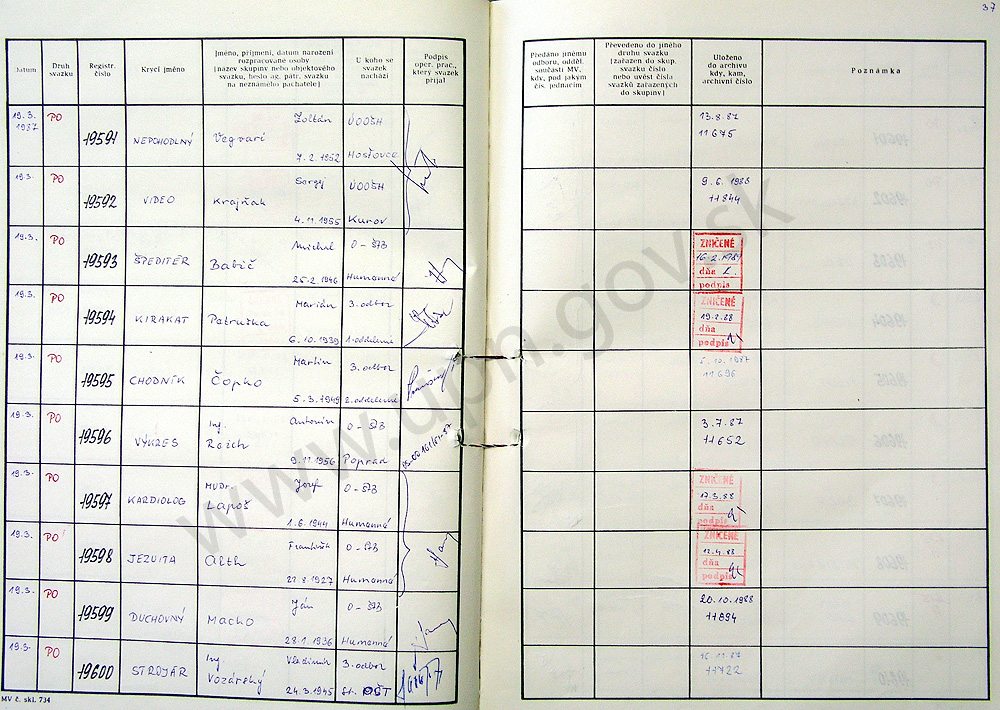 37
Datum
Druh svazku
Registr. číslo
Krycí jméno
Jméno, příjmení, datum narození
rozpracované osoby
[název skupiny nebo objektového
svazku, heslo ag. pátr. svazku
na neznámého pachatele]
U koho se
svazek
nachází
Podpis
oper. prac.,
který svazek
přijal
Předáno jinému
odboru, odděl.
součásti MV,
kdy, pod jakým
čís. jednacím
Převedeno do jiného
druhu svazku
[zařazen do skup.
svazku číslo
nebo uvést čísla
svazků zařazených
do skupiny]
Uloženo
do archivu
kdy, kam,
archivní číslo
Poznámka
19.3. 1987 PO 19591 NEPOHODLNÝ Zoltán Vegvari 7.2.1952 ÚOOŠH Hosťovce 13.8.87 11675
19.3. PO 19592 VIDEO Sergej Krajňak 4.11.1955 ÚOOŠH Kurov 9.6.1988 11844
19.3. PO 19593 ŠPEDITÉR Michal Babič 25.2.1946 O-ŠTB Humenné ZNIČENÉ 16.2.1989 dňa podpis
19.3. PO 19594 KIRAKAT Marián Petruška 6.10.1939 3. odbor 1. oddelenie ZNIČENÉ 19.2.88 dňa podpis
19.3. PO 19595 CHODNÍK Martin Čopko 5.3.1949 3. odbor 2. oddelenie 5.10.1987 11696
19.3. PO 19596 VÝKRES Ing. Antonín Rajch 9.11.1956 O-ŠTB Poprad 3.7.87 11652
19.3. PO 19597 KARDIOLOG MUDr. Jozef Lapoš 1.6.1944 O-ŠTB Humenné ZNIČENÉ 17.3.88 dňa podpis
19.3. PO 19598 JEZUITA František Alth 27.8.1927 O-ŠTB Humenné ZNIČENÉ 12.4.88 dňa podpis
19.3. PO 19599 DUCHOVNÝ Ján Macko 28.1.1936 O-ŠTB Humenné 20.10.1988 11894
19.3. PO 19600 STROJÁR Ing. Vladimír Vozárský 24.3.1945 3. odbor 16.11.87 11722
MV č. skl. 734
www.upn.gov.sk